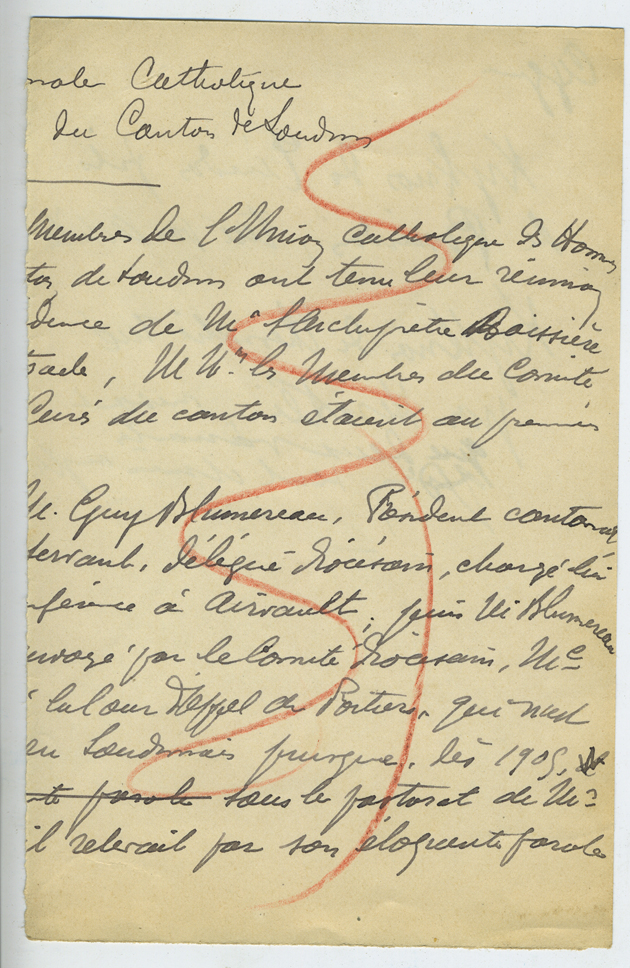 nale Catholique
du Canton de Loudun
Membres de l'Union Catholique des Hommes
ton de Loudun ont tenu leur réunion
dence de Mr l'Archiprêtre Boissière
M Mrs les Membres du Comité,
Curés du canton étaient au premier
M. Guy Blumereau, Président cantonal
servant, délégué diocésain, chargé d'un
nférence à Airvault, puis M Blumereau
nvoyé par le Comité diocésain, Me
à la Cour d'Appel de Poitiers, qui n'est
en Loudunais puisque, dès 1905,
te parole sous le pastorat de Mr
il relevait par son éloquente parole